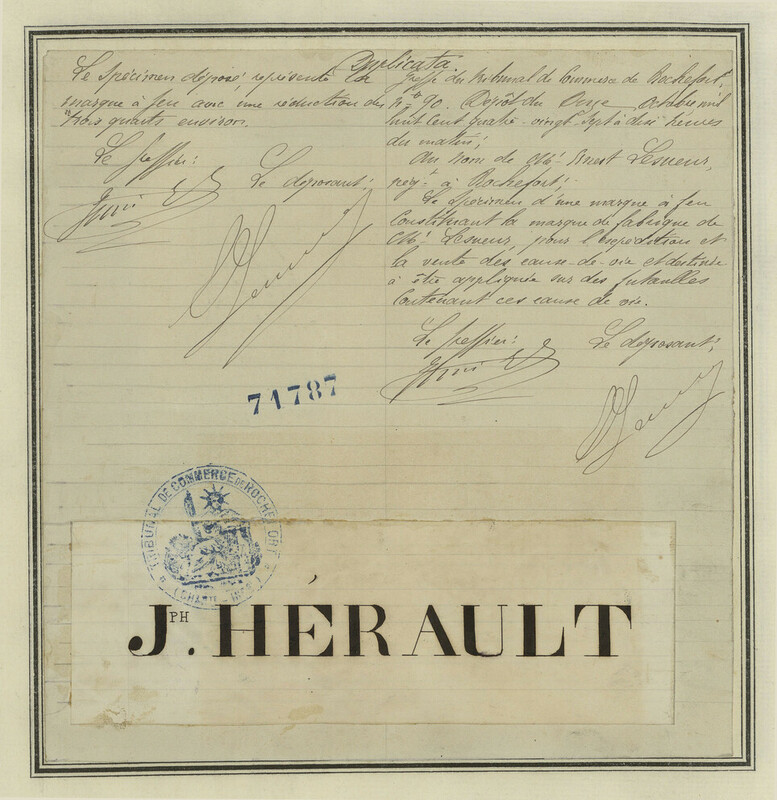 Duplicata.
Le spécimen déposé, représente la
marque à feu avec une réduction des
trois quarts environ.
Le greffier:
Le déposant:
Greffe du tribunal de Commerce de Rochefort,
No 90. Dépôt du Onze octobre mil
huit cent quatre-vingt sept à dix heures
du matin;
Au nom de Mr. Ernest Lesueur,
négt. à Rochefort;
Le spécimen d'une marque à feu
Constituant la marque de fabrique de
Mr. Lesueur, pour l'expédition et
la vente des eaux-de-vie et destinée
à être appliquée sur des futailles
Contenant ces eaux de vie.
Le greffier:
Le déposant:
71787
TRIBUNAL DE COMMERCE DE ROCHEFORT
JPH. HÉRAULT